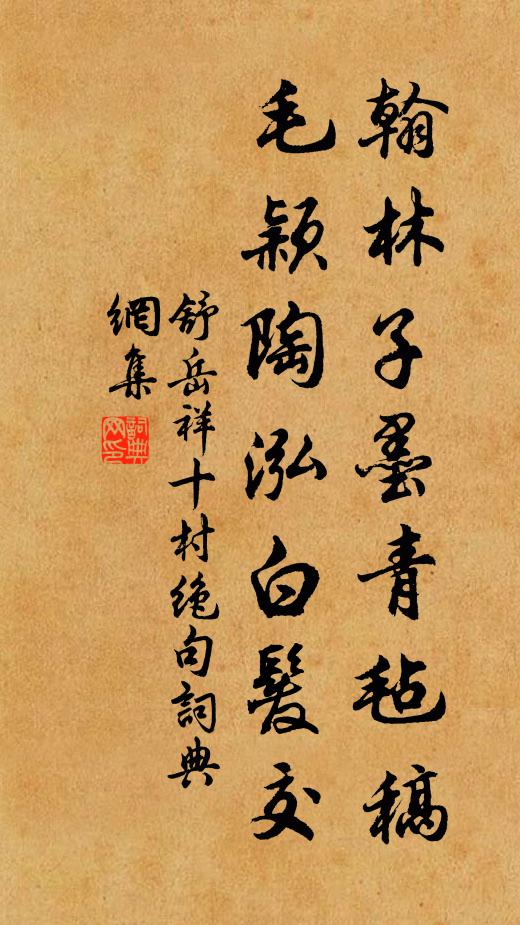 翰林子墨青毡稿
毛颖陶泓白髮交
舒岳祥十村绝句詞典
網集
詞典网印